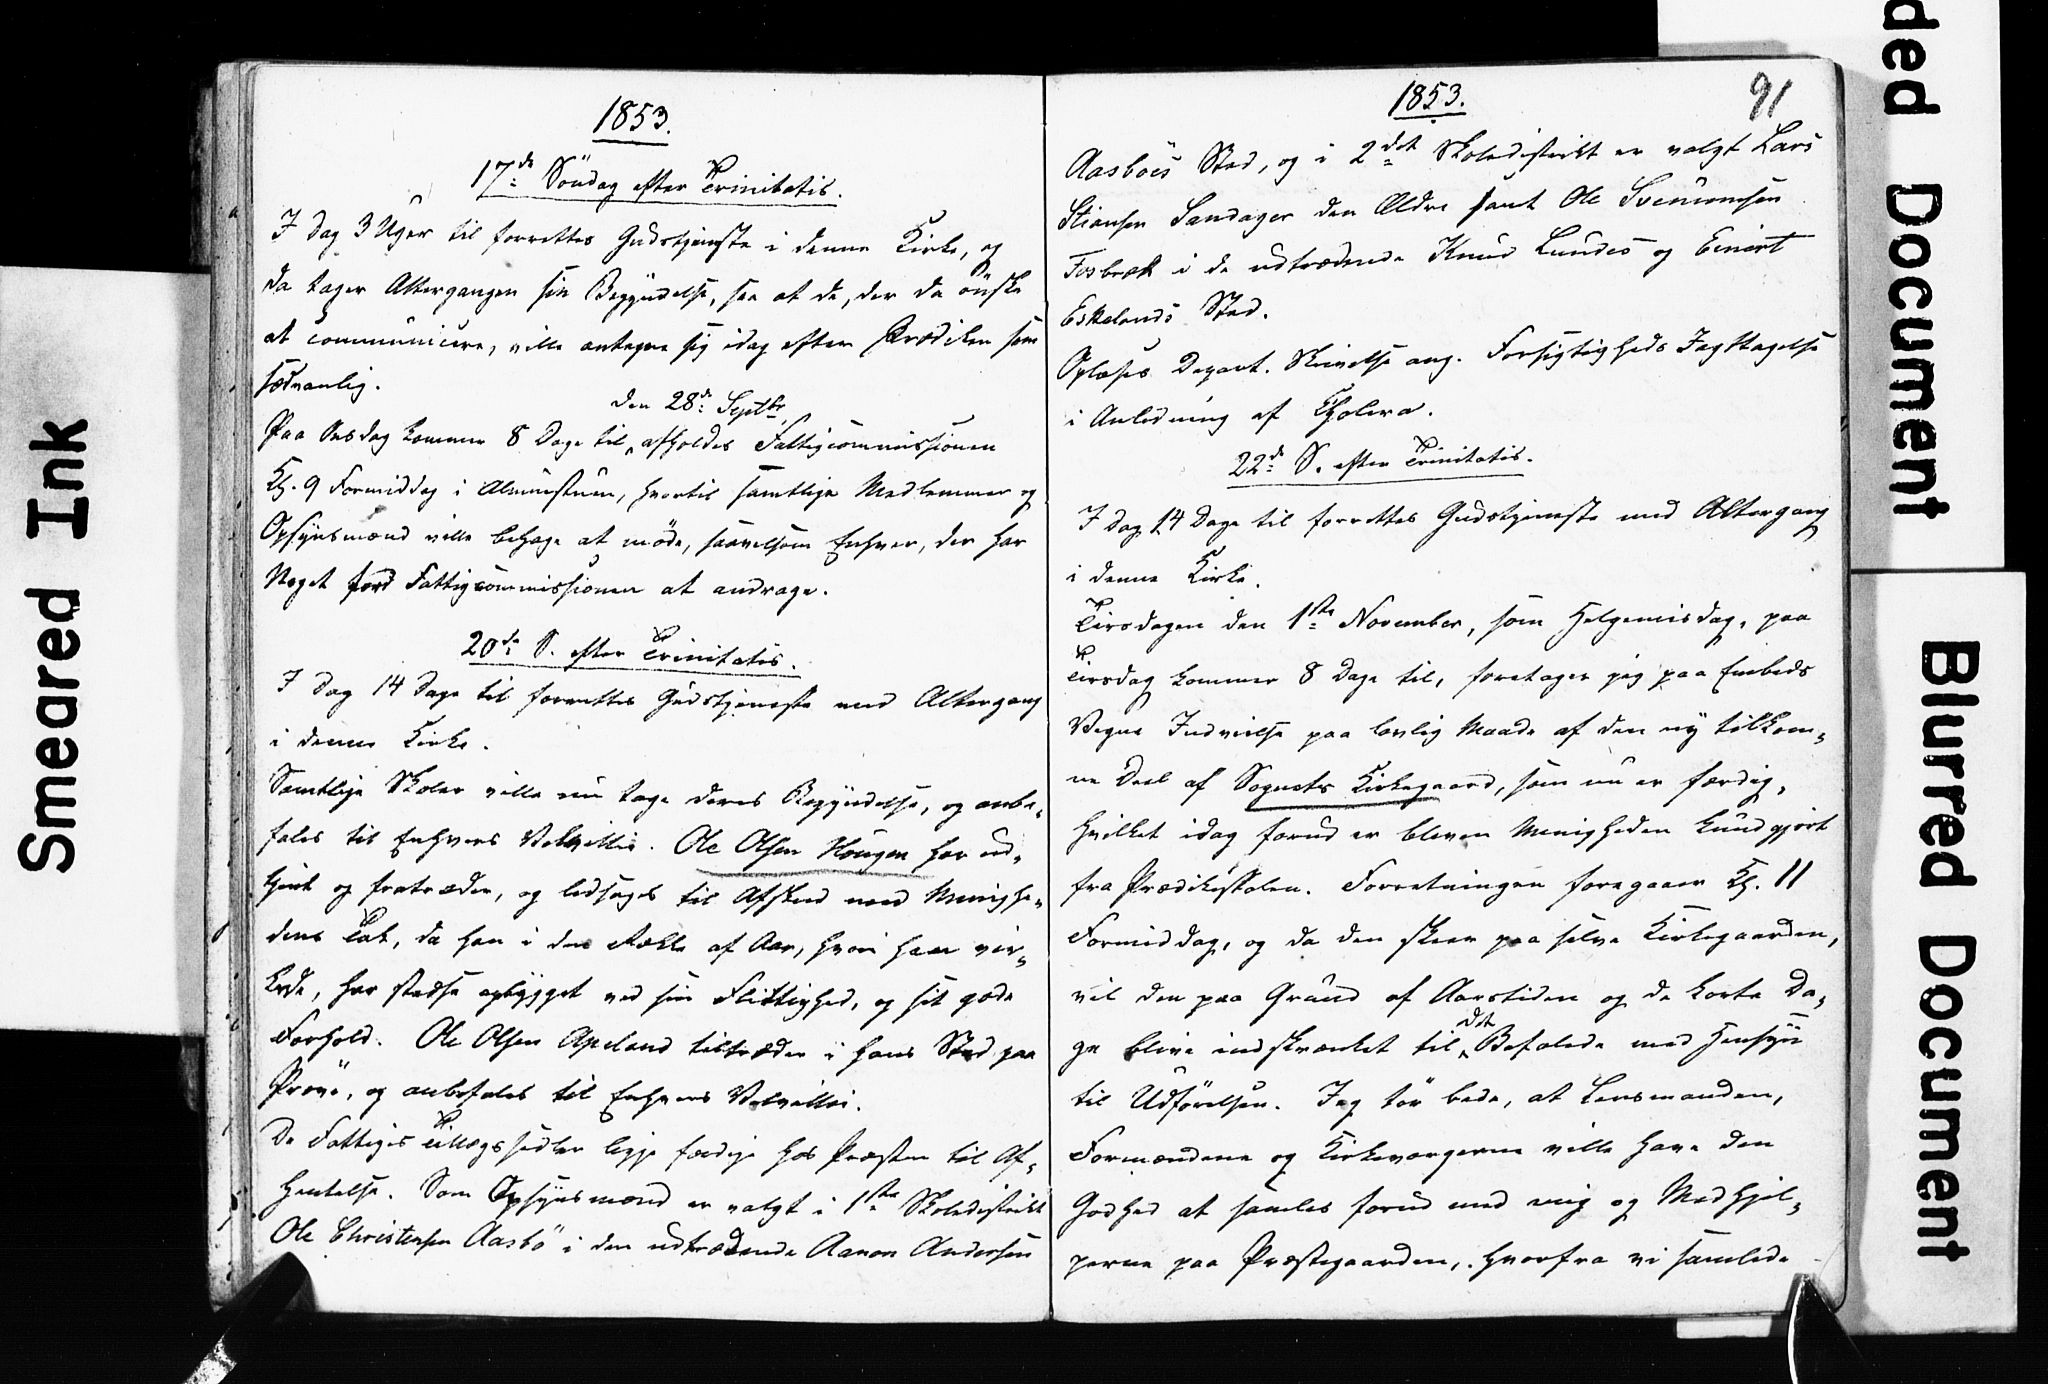 1853.
17de Söndag efter Trinitatis.
I Dag 3 Uger til forrettes Gudstjeneste i denne Kirke, og
da tager Altergangen sin Begyndelse, saa at de, der da önske
at communicere, ville antegne sig idag efter Prædiken som
sædvanlig.
den 28de Septbr
Paa Onsdag kommer 8 Dage til, afholdes Fattigcommissionen
Kl. 9 Formiddag i Almuestuen, hvortil samtlige Medlemmer og
Opsynsmænd ville behage at möde, saavelsom Enhver, der har
Noget for Fattigcommissionen at andrage.
20de S. efter Trinitatis.
I Dag 14 Dage til forrettes Gudstjeneste med Altergang
i denne Kirke.
Samtlige Skoler ville nu tage deres Begyndelse, og anbe-
fales til Enhvers Velvillie. Ole Olsen Hougen har ud-
tjent og fratræder, og ledsages til Afsked med Menighe-
dens Tak, da han i den Række af Aar, hvori han vir-
kede, har stedse opbygget ved sin Flittighed, og sit gode
Forhold. Ole Olsen Apeland tiltræder i hans Sted paa
Pröve, og anbefales til Enhvers Velvillie.
De Fattiges Tillægssedler ligge færdige hos Præsten til Af-
hentelse. Som Opsynsmænd er valgt i 1ste Skoledistrikt
Ole Christensen Aasbö i den udtrædende Aanon Andersen
1853.
91
Aasböes Sted, og i 2det Skoledistrikt er valgt Lars
Stiansen Sandager den Ældre samt Ole Svenumsen
Fosbræk i de udtrædende Knud Lundes og Einert
Eskelands Sted.
Oplæses Depart. Skrivelse ang. Forsigtigheds Iagttagelse
i Anledning af Cholera.
22de S. efter Trinitatis.
I Dag 14 Dage til forrettes Gudstjeneste med Altergang
i denne Kirke.
Tirsdagen den 1ste November, som Helgemisdag, paa
Tirsdag kommer 8 Dage til, foretager jeg paa Embeds
Vegne Indvielse paa lovlig Maade af den ny tilkom-
ne Deel af Sognets Kirkegaard, som nu er færdig,
hvilket idag forud er bleven Menigheden kundgjort
fra Prædikestolen. Forretningen foregaaer Kl. 11
Formiddag, og da den skeer paa selve Kirkegaarden,
vil den paa Grund af Aarstiden og de korte Da-
ge blive indskrænket til det Befalede med Hensyn
til Udförelsen. Jeg tör bede, at Lensmanden,
Formændene og Kirkevargerne ville have den
Godhed at samles forud med mig og Medhjel-
perne paa Præstegaarden, hvorfra vi samlede
Smeared Ink
ded Document
Blurred Document